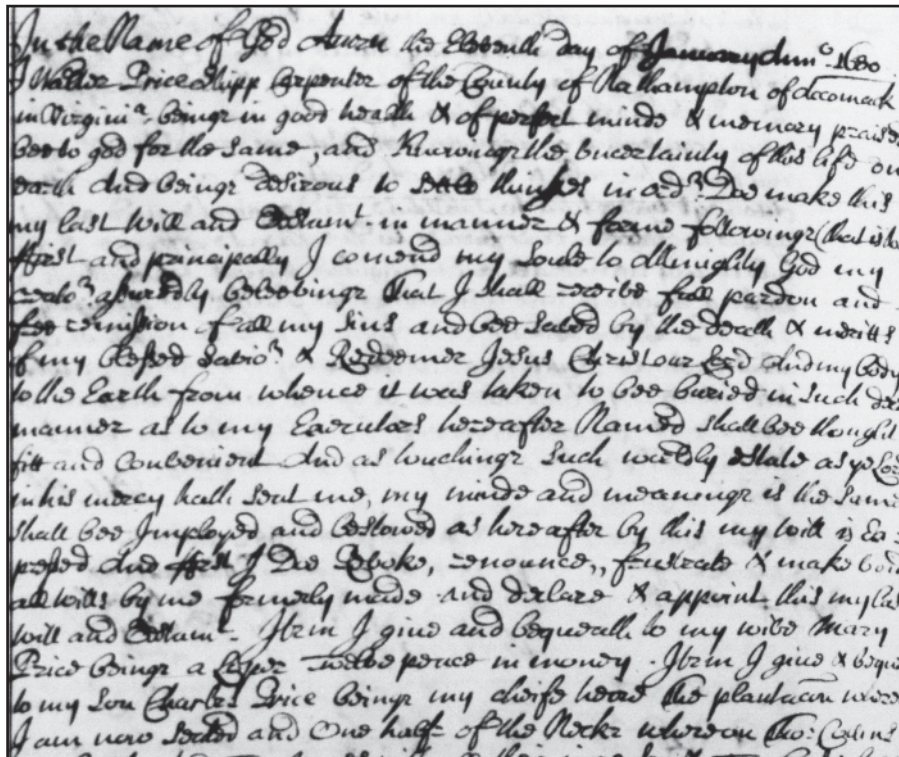 In the Name of God Amen the Eleventh day of January Anno 1680
I Walter Price Shipp Carpenter of the County of Nathampton of Accomack
in Virginia beinge in good health & of perfect minde & memory praised
bee to god for the same, and Knowinge the Uncertainty of this life on
earth And beinge desirous to settle thinges in ordr Doe make this
my last Will and Testamt in manner & forme followinge (that is to
ffirst and principally I comend my Soule to Allmighty God my
Creator assuredly beleevinge That I shall receive full pardon and
free remission of all my Sins and bee saved by the death & meritts
of my blessed Savior & Redeemer Jesus Christ our Lord And my body
to the Earth from whence it was taken to bee buried in Such
manner as to my Executors hereafter Named shall bee thought
fitt and Convenient And as touchinge Such worldly estate as ye Lord
in his mercy hath lent me, my minde and meaninge is the Same
shall bee Imployed and bestowed as hereafter by this my Will is Ex=
pressed And ffirst I Doe Revoke, renounce, frustrate & make void
all wills by me formerly made and declare & appoint this my last
will and Testamt Item I give and bequeath to my wife Mary
Price beinge a twelve pence in money. Item I give & beque
to my Son Charles Price beinge my cheife heire The plantacon where
I am now Seated and One halfe of the Neck whereon Tho: